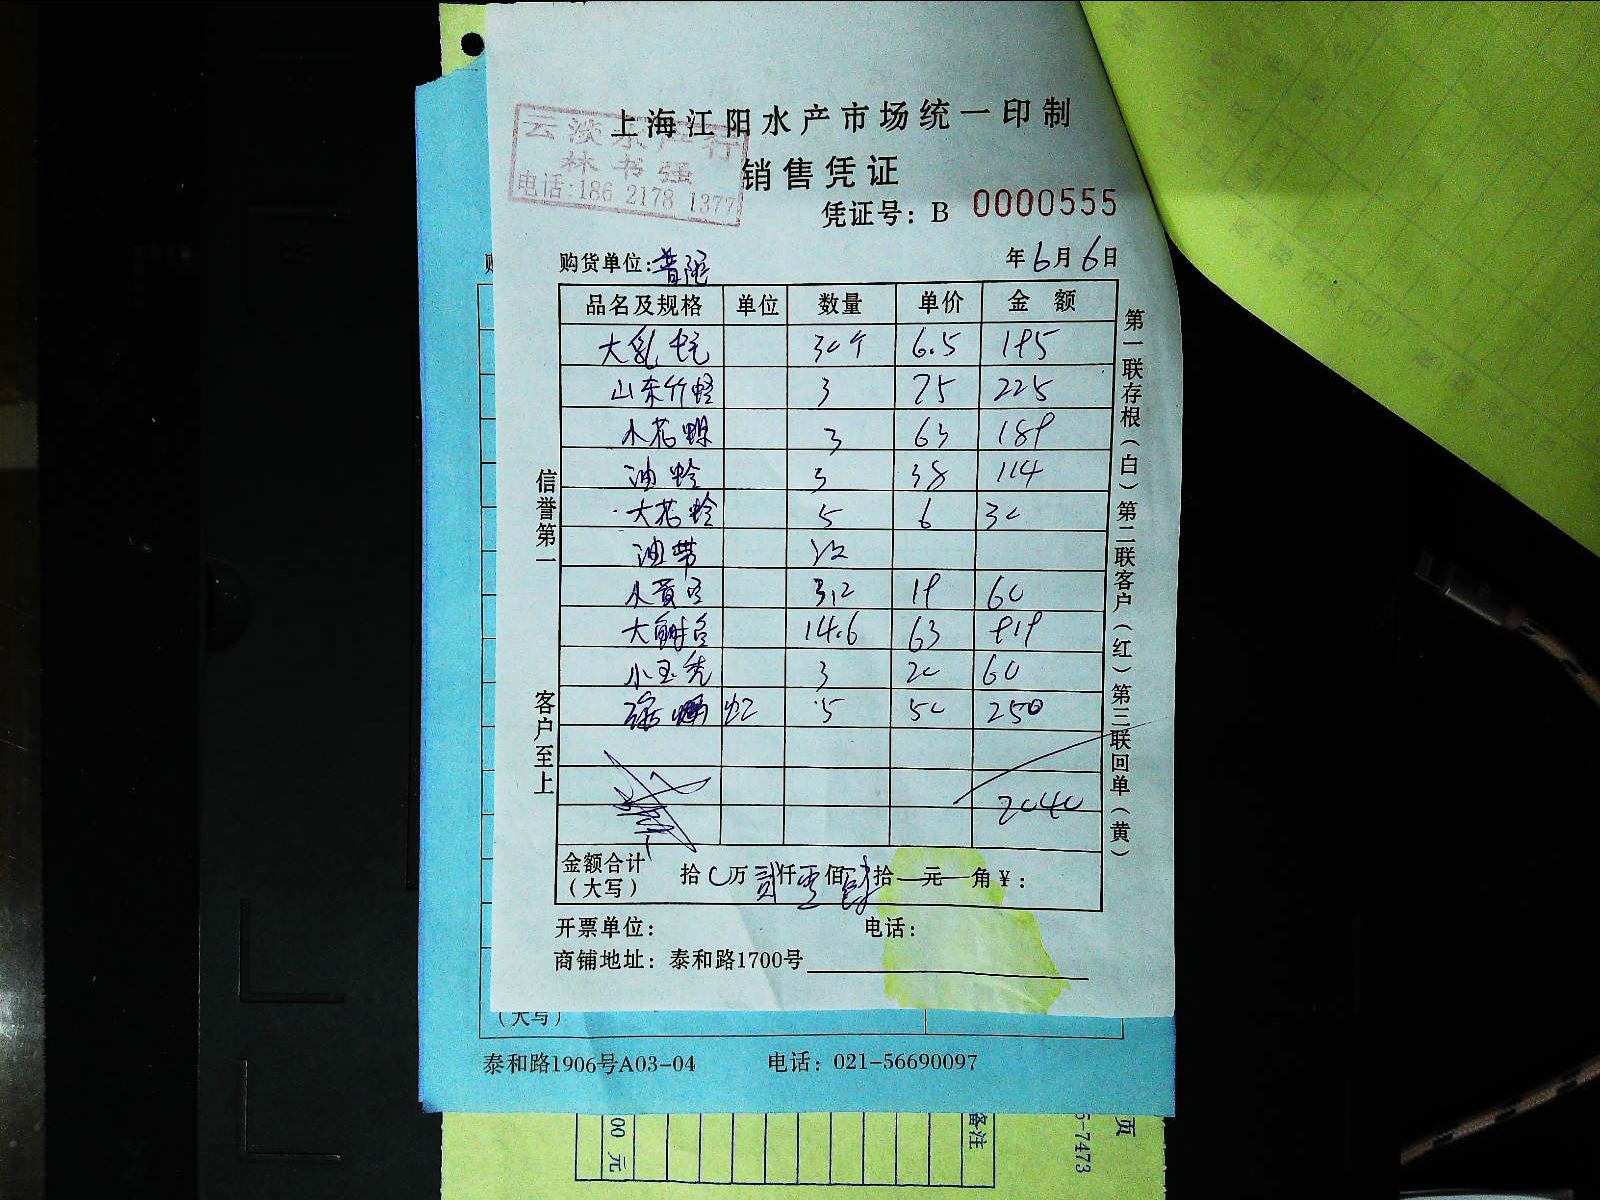 上海江阳水产市场统一印制
云淡水产行
林书强
电话:186 2178 1377
销售凭证
凭证号: B 0000555
购货单位:普陀 年6月6日
品名及规格 单位 数量 单价 金 额
大乳 30个 6.5 195
山东竹蛏 3 75 225
小花螺 3 63 189
油蛤 3 38 114
大花蛤 5 6 30
油带
小黄 3.2 19 60
大 14.6 63 919
小玉秃 3 20 60
虹 5 50 250
2040
金额合计
(大写) 拾0万贰仟零佰肆拾一元 角¥:
开票单位: 电话:
商铺地址: 泰和路1700号
信誉第一 客户至上
第一联存根(白)第二联客户(红)第三联回单(黄)
(大写)
泰和路1906号A03-04 电话: 021-56690097
00 元
备注
页
5-7473